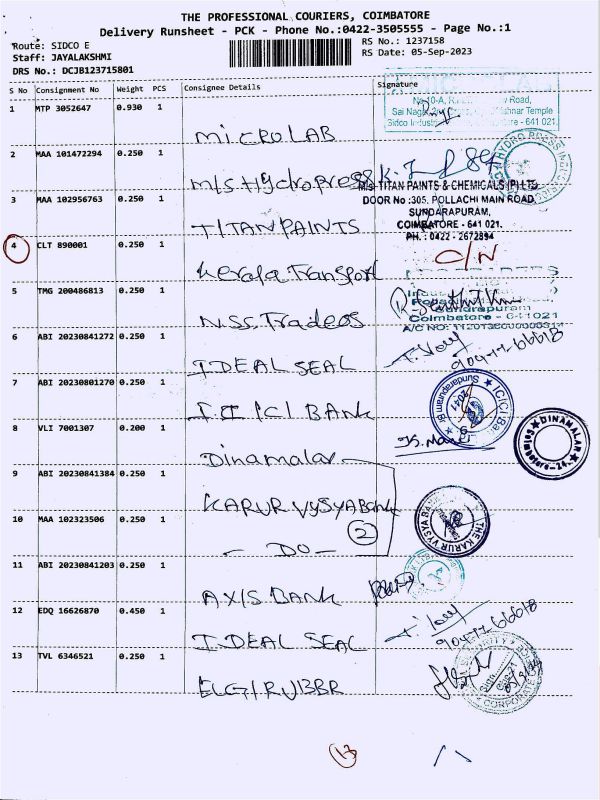 THE PROFESSIONAL COURIERS, COIMBATORE
Delivery Runsheet - PCK - Phone No.:0422-3505555 - Page No.:1
Route: SIDCO E
RS No.: 1237158
Staff: JAYALAKSHMI
RS Date: 05-Sep-2023
DRS No.: DCJB123715801
S No Consignment No Weight PCS Consignee Details Signature
1 MTP 3052647 0.930 1
MICRO LAB
2 MAA 101472294 0.250 1
M/S Hydropress
3 MAA 102956763 0.250 1
M/s TITAN PAINTS & CHEMICALS (P) LTD
DOOR No :305, POLLACHI MAIN ROAD
SUNDARAPURAM,
COIMBATORE - 641 021.
PH. : 0422 - 2672894
TITAN PAINTS
4 CLT 890001 0.250 1
Kerala Transport
5 TMG 200486813 0.250 1
Sundarapuram
Coimbatore - 641021
N.S.S. Traders
6 ABI 20230841272 0.250 1
90477-66618
IDEAL SEAL
7 ABI 20230801270 0.250 1
ICICI BANK
8 VLI 7001307 0.200 1
DINAMALAR
Dinamalar
9 ABI 20230841384 0.250 1
KARUR VYSYA Bank
THE KARUR VYSYA BANK
10 MAA 102323506 0.250 1
2
- DO -
11 ABI 20230841203 0.250 1
AXIS BANK
12 EDQ 16626870 0.450 1
90477-66618
IDEAL SEAL
13 TVL 6346521 0.250 1
ELGI RUBBR
13